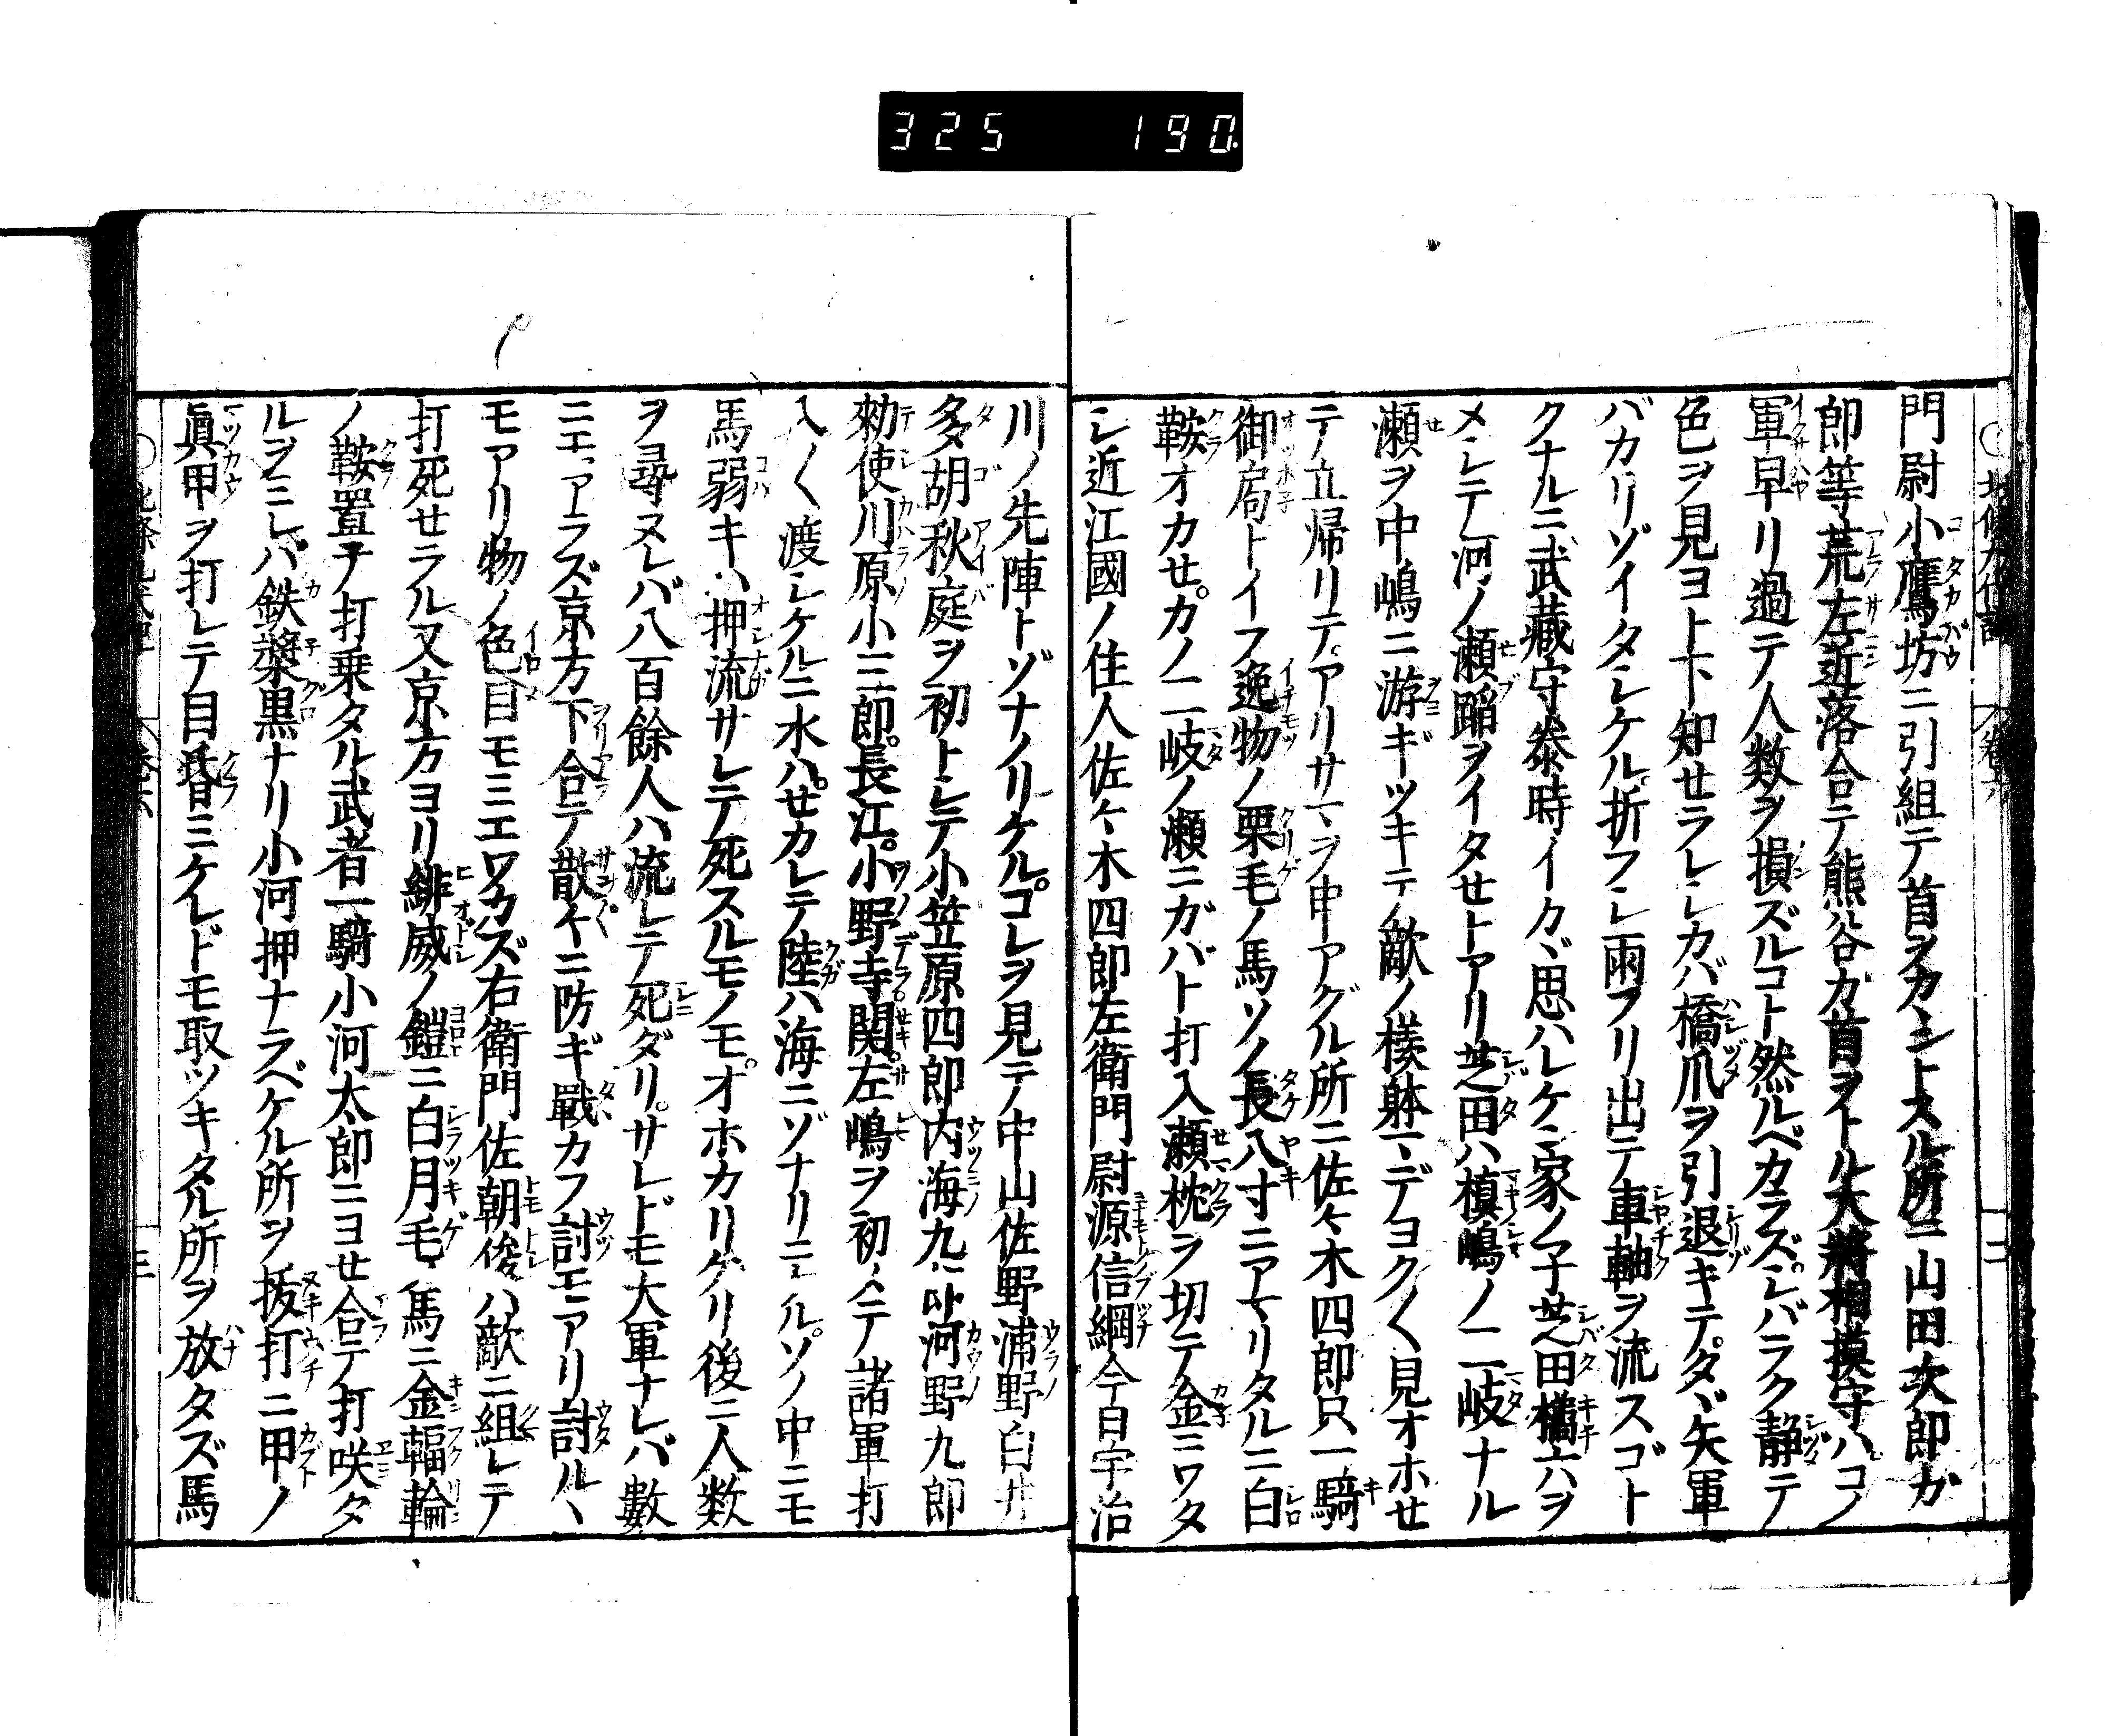 325 190
門尉小鷹坊ニ引組テ首ヲカントスル所ニ山田次郎ガ
郎等荒左近落合テ熊谷ガ首ヲトル大将相摸守ハコノ
軍早リ過テ人数ヲ損ズルコト然ルベカラズシバラク静テ
色ヲ見ヨト下知セラレシカバ橋爪ヲ引退キテタヾ矢軍
バカリゾイタシケル折フシ雨フリ出テ車軸ヲ流スゴト
クナルニ武蔵守泰時イカヾ思ハレケン家ノ子芝田橘六ヲ
メシテ河ノ瀬蹈ヲイタセトアリ芝田ハ槙嶋ノ二岐ナル
瀬ヲ中嶋ニ游ギツキテ敵ノ様躰マデヨク〱見オホセ
テ立帰リテアリサマヲ申アグル所ニ佐々木四郎只一騎
御局トイフ逸物ノ栗毛ノ馬ソノ長八寸ニアマリタルニ白
鞍オカセカノ二岐ノ瀬ニガバト打入瀬枕ヲ切テ金ニワタ
シ近江國ノ住人佐々木四郎左衛門尉源信綱今日宇治
川ノ先陣トゾナノリケルコレヲ見テ中山佐野浦野白井
多胡秋庭ヲ初トシテ小笠原四郎内海九郎河野九郎
勅使川原小三郎長江小野寺関左嶋ヲ初ヘテ諸軍打
入〱渡シケルニ水ハセカレテ陸ハ海ニゾナリニケルソノ中ニモ
馬弱キハ押流サレテ死スルモノモオホカリケリ後ニ人数
ヲ尋ヌレバ八百餘人ハ流レテ死ダリサレドモ大軍ナレバ數
ニエアラズ京方下合テ散々ニ防ギ戰カフ討モアリ討ルヽ
モアリ物ノ色目モミエワカズ右衛門佐朝俊ハ敵ニ組レテ
打死セラル又京方ヨリ緋威ノ鎧ニ白月毛馬ニ金輻輪
ノ鞍置テ打乗タル武者一騎小河太郎ニヨセ合テ打咲タ
ルヲミレバ鉄漿黒ナリ小河押ナラベケル所ヲ抜打ニ甲ノ
眞甲ヲ打レテ目昏ミケレドモ取ツキタル所ヲ放タズ馬